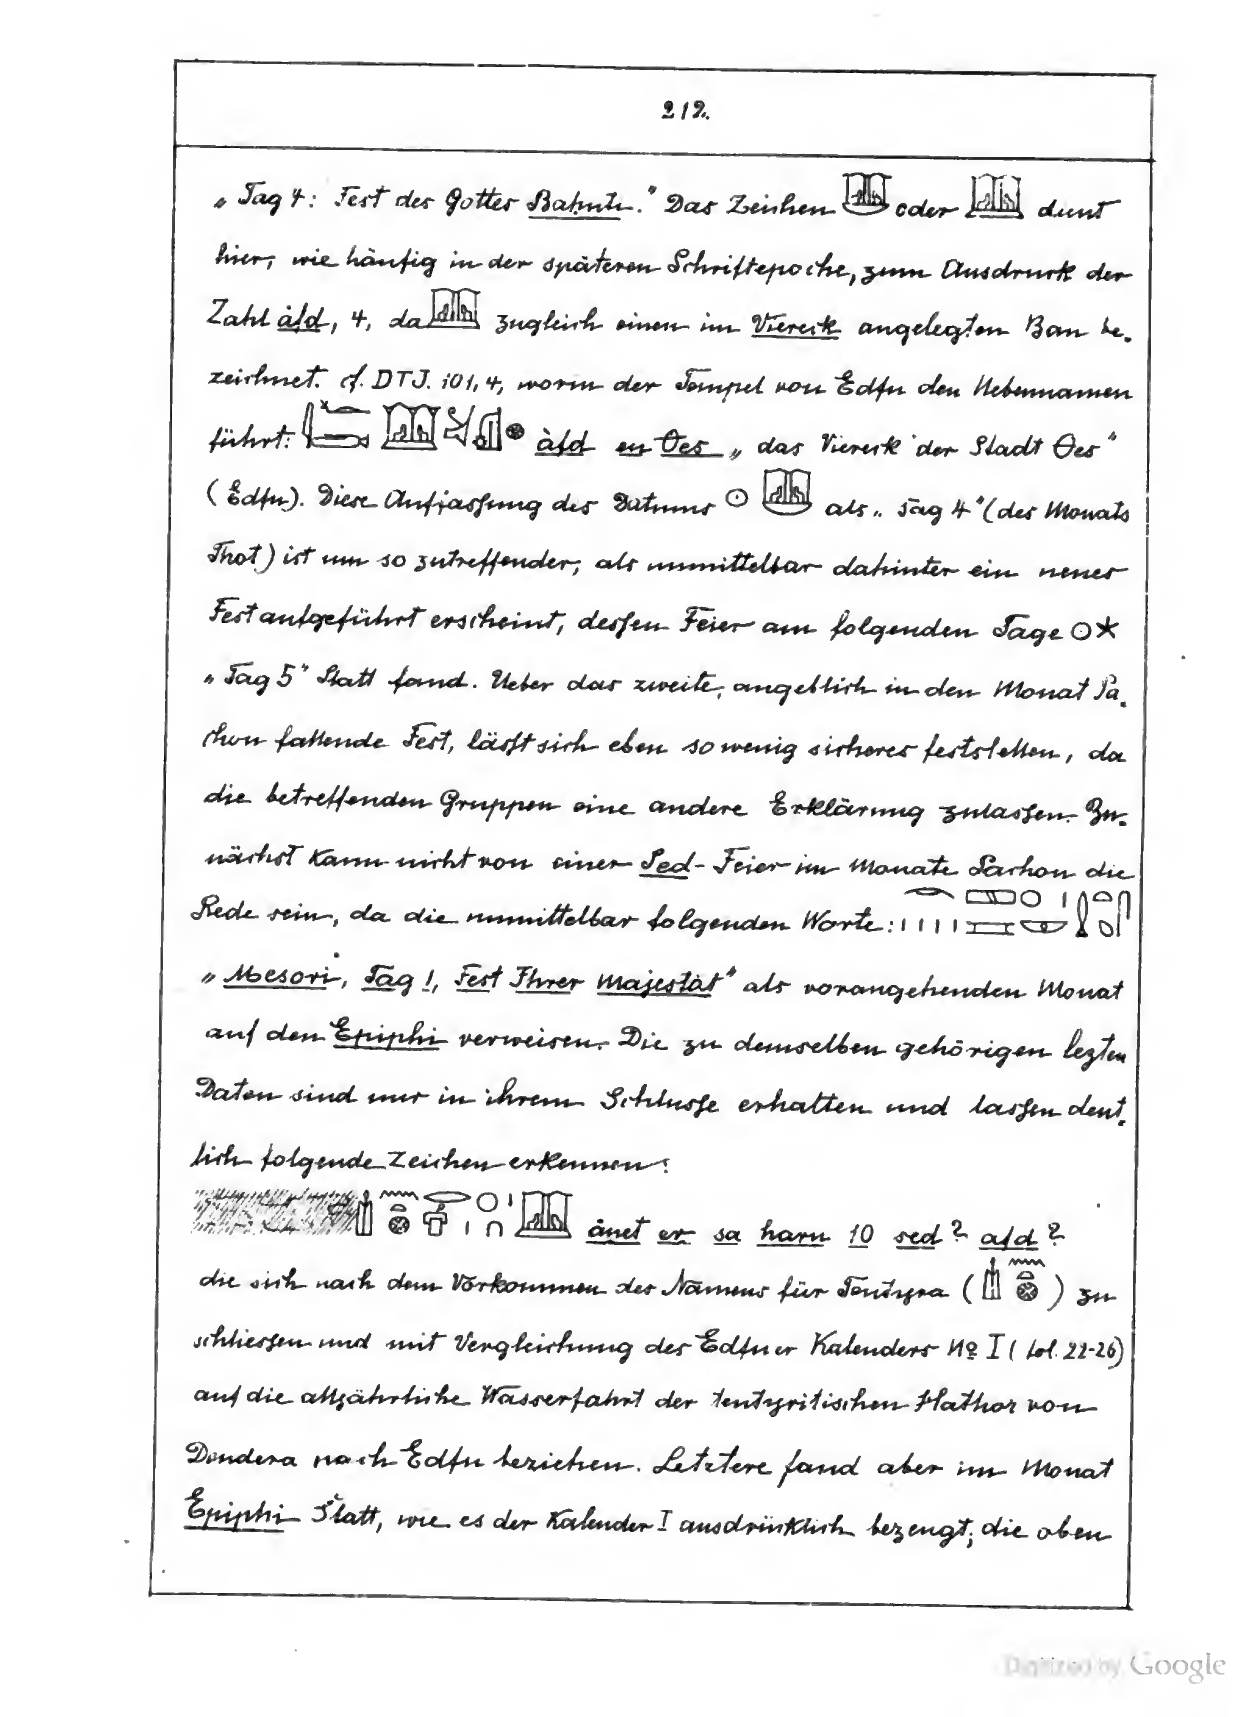 212.
„Tag 4: Fest des Gottes Bahuti." Das Zeichen oder dient
hier, wie häufig in der späteren Schriftepoche, zum Ausdruck der
Zahl àfd, 4, da zugleich einen im Viereck angelegten Bau be-
zeichnet. cf. DTJ. 101, 4, worin der Tempel von Edfu den Nebennamen
führt: àfd en Θes „das Viereck der Stadt Θes"
(Edfu). Diese Auffassung des Datums ☉ als „Tag 4" (des Monats
Thot) ist um so zutreffender, als unmittelbar dahinter ein neues
Fest aufgeführt erscheint, dessen Feier am folgenden Tage ☉★
„Tag 5" Statt fand. Ueber das zweite, angeblich in den Monat Pa-
chon fallende Fest, lässt sich eben so wenig sicheres feststellen, da
die betreffenden Gruppen eine andere Erklärung zulassen. Zu-
nächst kann nicht von einer Sed-Feier im Monate Pachon die
Rede sein, da die unmittelbar folgenden Worte:
„Mesori, Tag 1, Fest Ihrer Majestät" als vorangehenden Monat
auf den Epiphi verweisen. Die zu demselben gehörigen lezten
Daten sind nur in ihrem Schlusse erhalten und lassen deut-
lich folgende Zeichen erkennen:
ànet er sa haru 10 sed? afd?
die sich nach dem Vorkommen des Namens für Tentyra ( ) zu
schliessen und mit Vergleichung des Edfuer Kalenders No I (Lol. 22-26)
auf die alljährliche Wasserfahrt der tentyritischen Hathor von
Dendera nach Edfu beziehen. Letztere fand aber im Monat
Epiphi Statt, wie es der Kalender I ausdrücklich bezeugt, die oben
Digitized by Google